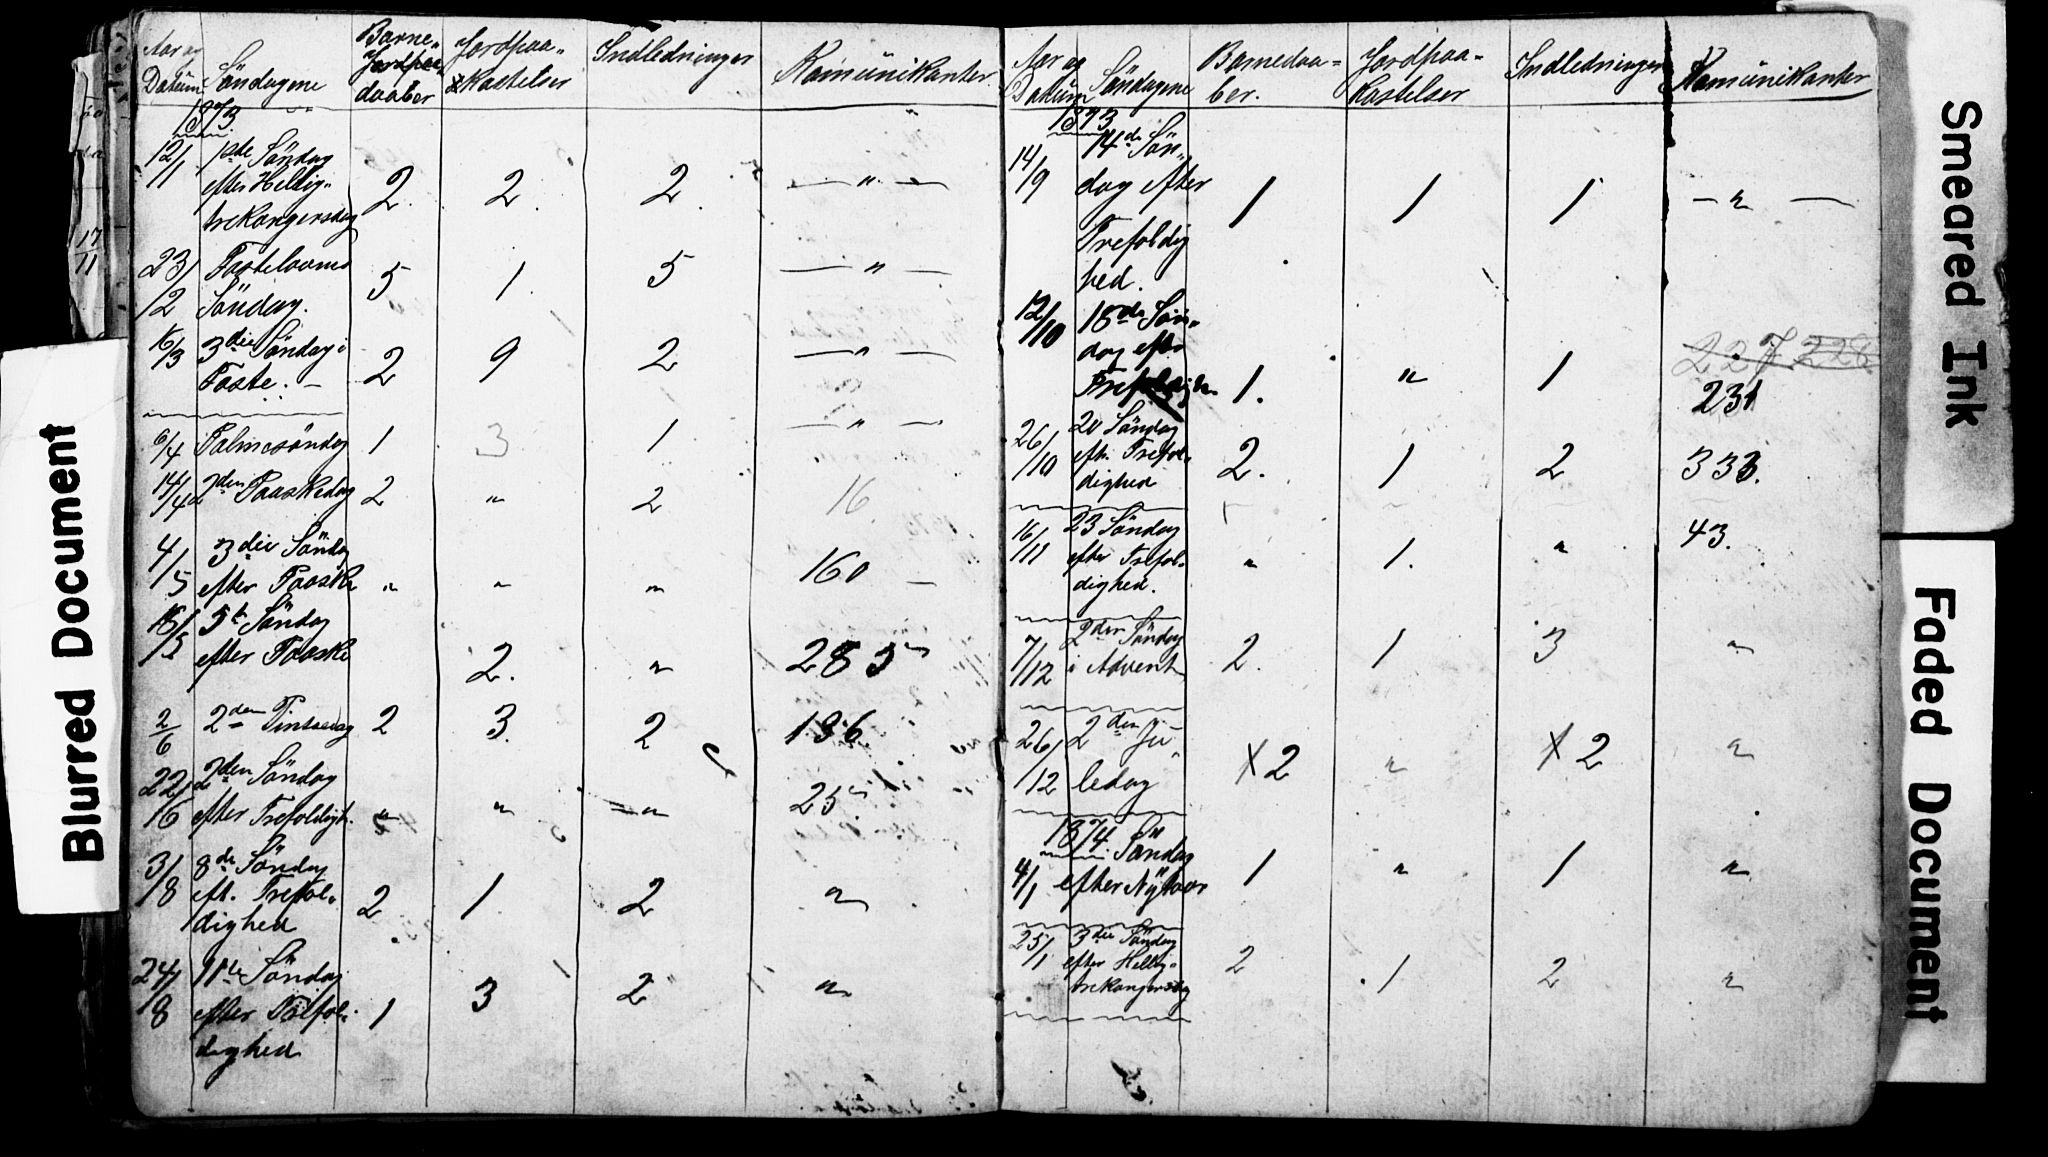 Aar og Datum Söndagene Barne- daaber Jordpaa- kastelser Indledninger Komünikanter
1873
12/1 1ste Söndag
efter Hellig-
trekongersdag 2. 2. 2 — " —
23/2 Fastelavns
Söndag. 5 1. 5 — " —
16/3 3die Söndag i
Faste. — 2 9 2 — " —
6/4 Palmesöndag 1 3 1. — " —
14/4 2den Paaskedag 2 " 2 16
4/5 3die Söndag
efter Paaske " " " 160 —
18/5 5te Söndag
efter Paaske 2. " 285
2/6 2den Pintsedag 2 3. 2 186
22/6 2den Söndag
efter Trefoldigh. " " " 25
3/8 8de Söndag
eft. Trefol-
dighed 2 1. 2 "
24/8 11te Söndag
efter Trefol-
dighed 1 3 2 "
Aar og Datum Söndagene Barnedaa- ber. Jordpaa- kastelser Indledninger Komünikanter
1873
14/9 14de Sön-
dag efter
Trefoldig
hed. 1 1 1 — " —
12/10 18de Sön-
dag efter
1. " 1 227 228
231
26/10 20 Söndag
eft. Trefol-
dighed 2. 1 2 333.
16/11 23 Söndag
efter Trefol-
dighed. " 1. " 43.
7/12 2den Söndag
i Advent 2. 1 3 "
26/12 2den Ju-
ledag X 2 " X 2 "
1874
4/1 Söndag
efter Nytaar 1 " 1 "
25/1 3die Söndag
efter Hellig-
trekongersdag 2 1 2 "
17
11
Blurred Document
Smeared Ink
Faded Document